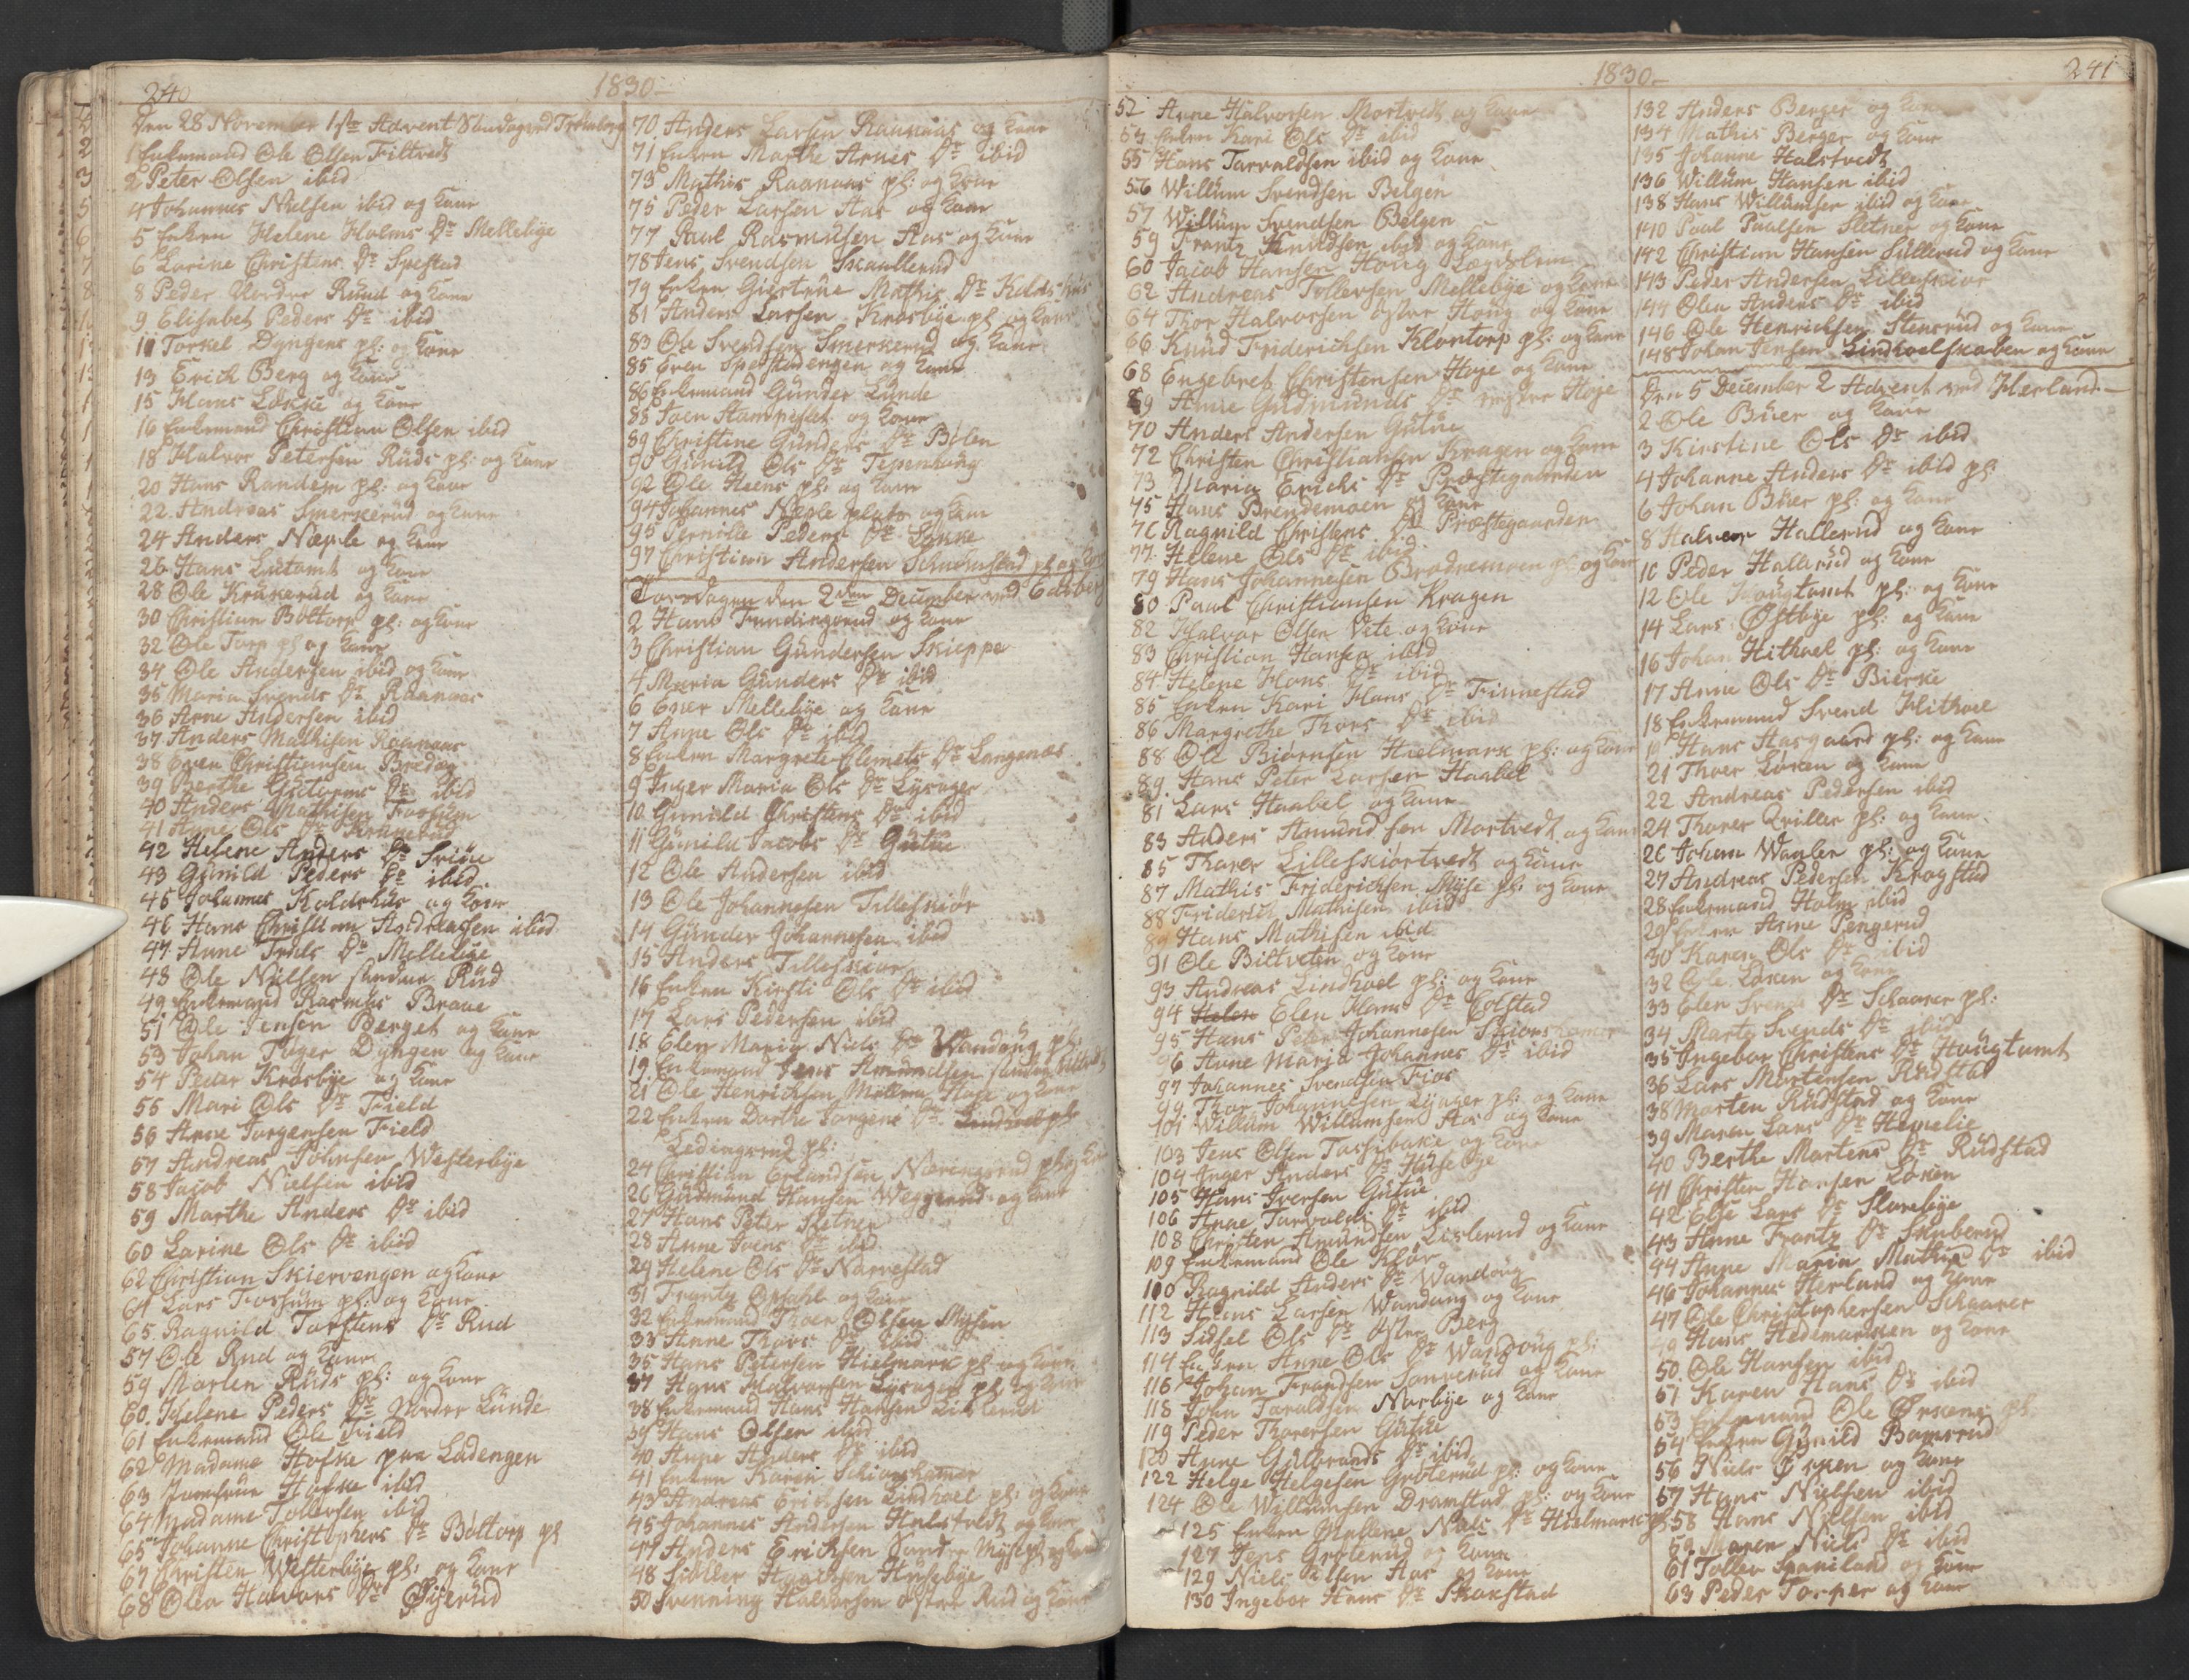 240
1830
Den 28 November 1ste Advent Søndag ved Trømborg
1 Enkemand Ole Olsen Filtvedt
2 Peter Olsen ibid
4 Johannes Nielsen ibid og Kone
5 Enken Helene Holms Dr Mellebye
6 Larine Christens Dr Spestad
8 Peder Nordre Rüud og Kone
9 Elisabet Peders Dr ibid
11 Torkel Dyngens pl: og Kone
13 Erich Berg og Kone
15 Hans Løkke og Kone
16 Enkemand Christian Olsen ibid
18 Halvor Petersen Rüds pl: og Kone
20 Hans Randem pl: og Kone
22 Andreas Smerkerüd og Kone
24 Anders Næple og Kone
26 Hans Lutomt og Kone
28 Ole Krukerud og Kone
30 Christian Bøltorp pl: og Kone
32 Ole Torp pl og Kone
34 Ole Andersen ibid og Kone
35 Maria Svends Dr Raanaas
36 Arne Andersen ibid
37 Anders Mathisen Raanaas
38 Even Christiansen Bredag
39 Berthe Guttorms Dr ibid
40 Anders Mathisen Fossum
41 Anne Ols Dr Krukerud
42 Helene Anders Dr Friüe
43 Günild Peders Dr ibid
45 Johannes Koldshüs og Kone
46 Hans Christian Andreasen ibid
47 Anne Truls Dr Mellebye
48 Ole Nielsen søndre Rüd
49 Enkemand Rasmus Braae
51 Ole Jensen Berget og Kone
53 Johan Tüger Dyngen og Kone
54 Peder Krosbye og Kone
55 Mari Ols Dr Field
56 Arne Jørgensen Field
57 Andreas Johnsen Westerbye
58 Jacob Nielsen ibid
59 Marthe Anders Dr ibid
60 Larine Ols Dr ibid
62 Christian Skiervengen og Kone
64 Lars Fossum pl: og Kone
65 Ragnild Torstens Dr Rud
57 Ole Rud og Kone
59 Morten Rüds pl: og Kone
60 Helene Peders Dr Nordre Lünde
61 Enkemand Ole Field
62 Madame Hofke paa Ladengen
63 Jomfrue Hofke ibid
64 Madame Tollefsen ibid
65 Johanne Christophers Dr Bøltorp pl
67 Christen Westerbye pl: og Kone
68 Olea Halvors Dr Øyerüd
70 Anders Larsen Raanaas og Kone
71 Enken Marthe Arnes Dr ibid
73 Mathis Raanaas pl: og Kone
75 Peder Larsen Aas og Kone
77 Paul Rasmusen Aas og Kone
78 Jens Svendsen Skaullerud
79 Enken Giertrüe Mathis Dr Koldshüs
81 Anders Larsen Krosbye pl og Kone
83 Ole Svendsen Smerkerud og Kone
85 Even Spestadengen og Kone
86 Enkemand Gunder Lünde
88 Søren Hamnestet og Kone
89 Christine Gunders Dr Bølen
90 Günild Ols Dr Tipenhaug
92 Ole Heens pl: og Kone
94 Johannes Næple plads og Kone
95 Pernille Peders Dr Løkke
97 Christian Andersen pl og Kone
Torsdagen den 2den December ved Edsberg
2 Hans Frudingsrud og Kone
3 Christian Gündersen Skieppe
4 Maria Günders Dr ibid
6 Ener Mellebye og Kone
7 Anne Ols Dr ibid
8 Enken Margrete Clemets Dr Langenæs
9 Inger Maria Ols Dr Lysager
10 Gunild Christens Dr ibid
11 Günild Jacobs Dr Gütue
12 Ole Andersen ibid
13 Ole Johannesen Tilleskiør
14 Günder Johannesen ibid
15 Anders Tilleskiør
16 Enken Kirsti Ols Dr ibid
17 Lars Pedersen ibid
18 Elen Maria Niels Dr Vandaug pl:
19 Enkemand Jens Amundsen søndre
21 Ole Henrichsen Møllen Hoje og Kone
22 Enken Dorthe Jørgens Dr Lindhoel pl
Ledingsrud pl:
24 Christian Erlandsen Næringsrud pl og Kone
26 Gudmund Hansen Weggerud og Kone
27 Hans Peter Sletner
28 Anne Joens Dr ibid
29 Helene Ols Dr Narvestad
31 Frantz Opsahl og Kone
32 Enkemand Thoer Olsen Mysen
33 Anne Thors Dr ibid
35 Hans Petersen Hielmark pl og Kone
37 Hans Halvorsen Lysager pl og Kone
38 Enkemand Hans Hansen Lislerud
39 Hans Olsen ibid
40 Anne Anders Dr ibid
41 Enken Karen Schiønhamer
43 Andreas Erichsen Lindhoel pl: og Kone
45 Johannes Andersen Halstvedt og Kone
47 Anders Erichsen Søndre Myse pl og Kone
48 Siøller Haachsen Husebye
50 Svenning Halvorsen østre Rud og Kone
1830
241
52 Arne Halvorsen Mortvedt og Kone
53 Enken Kari Ols Dr ibid
55 Hans Tarvaldsen ibid og Kone
56 Willüm Svendsen Bølgen
57 Willüm Svendsen Bølgen
59 Frantz Knudsen ibid og Kone
60 Jacob Hansen Houg Lægdslem
62 Andreas Tollevsen Mellebye og Kone
64 Thor Halvorsen østre Houg og Kone
66 Knüd Friderichsen Kløntorp pl: og Kone
68 Engebret Christensen Hoje og Kone
69 Anne Gudmünds Dr Hoje
70 Anders Andersen Gütue
72 Christen Christiansen Kragen og Kone
73 Maria Erichs Dr Præstegaarden
75 Hans Brendemoen og Kone
76 Ragnild Christens Dr Præstegaarden
77 Helene Ols Dr ibid
79 Hans Johannesen Brødremoen pl og Kone
80 Paul Christiansen Kragen
82 Halvor Olsen Vete og Kone
83 Christian Hansen ibid
84 Helene Hans Dr ibid
85 Enken Kari Hans Dr Finnestad
86 Margrethe Thors Dr ibid
88 Ole Biørnsen Hielmark pl: og Kone
89 Hans Peter Larsen Haabel
81 Lars Haabel og Kone
83 Anders Amundsen Mortvedt og Kone
85 Thorer Lilleskiørtvedt og Kone
87 Mathis Friderichsen Myse pl: og Kone
88 Friderich Mathisen ibid
89 Hans Mathisen ibid
91 Ole Biltveten og Kone
93 Andreas Lindhoel pl: og Kone
94 Elen Hans Dr Colstad
95 Hans Peter Johannesen Skiønhamer
96 Anne Maria Johannes Dr ibid
97 Johannes Svendsen Fios
99 Thor Johannesen Lysager pl: og Kone
101 Willum Willumsen Aas og Kone
103 Jens Olsen Tossebake og Kone
104 Inger Anders Dr Husebye
105 Hans Iversen Gütue
106 Anne Tarvalds Dr ibid
108 Christen Amundsen Lislerud og Kone
109 Enkemand Ole Kløv
110 Ragnild Anders Dr Wandoug
112 Hans Larsen Wandaug og Kone
113 Sidsel Ols Dr østre Berg
114 Enken Anne Ols Dr Wandoug pl:
116 Johan Frandsen Sonnerud og Kone
118 John Taraldsen Narbye og Kone
119 Peder Thorersen Gütue
120 Anne Gulbrands Dr ibid
122 Helge Helgesen Grøterud pl: og Kone
124 Ole Willumsen Dramstad pl: og Kone
125 Enken Mallene Niels Dr Hielmark pl
127 Jens Grøterud og Kone
129 Niels Olsen Aas og Kone
130 Ingebor Hans Dr Skakstad
132 Anders Berger og Kone
134 Mathis Berger og Kone
135 Johanne Halstvedt
136 Willüm Hansen ibid
138 Hans Willümsen ibid og Kone
140 Paul Paulsen Sletner og Kone
142 Christian Hansen Süllerud og Kone
143 Peder Andersen Lilleskiør
144 Olea Anders Dr ibid
146 Ole Henrichsen Stensrüd og Kone
148 Johan Jensen Lindhoelskoben og Kone
Den 5 December 2 Advent ved Herland
2 Ole Büer og Kone
3 Kirstine Ols Dr ibid
4 Johanne Anders Dr ibid pl:
6 Johan Büer pl: og Kone
8 Halvor Hallerud og Kone
10 Peder Hallerüd og Kone
12 Ole Hougtomt pl: og Kone
14 Lars Østbye pl: og Kone
16 Johan Hithoel pl: og Kone
17 Anne Ols Dr Bierke
18 Enkemand Svend Hithoel
Hans Aasgaard pl: og Kone
21 Thoer Løken og Kone
22 Andreas Pedersen ibid
24 Thorer Qviller pl: og Kone
26 Johan Waaler pl: og Kone
27 Andreas Pedersen Krogstad
28 Enkemand Holm ibid
29 Enken Anne Pengerud
30 Karen Ols Dr ibid
32 Ole Løken og Kone
33 Elen Svends Dr Schaarer pl:
34 Marte Svends Dr ibid
35 Ingebor Christens Dr Hougtomt
36 Lars Mortensen Rudstad
38 Morten Rüdstad og Kone
39 Maren Lars Dr Hemelie
40 Berthe Mortens Dr Rüdstad
41 Christen Hansen Løken
42 Else Lars Dr Slorebye
43 Anne Frantz Dr Skuberud
44 Anne Maria Mathis Dr ibid
46 Johannes Herland og Kone
47 Ole Christophersen Schaarer
49 Hans Hedemarken og Kone
50 Ole Hansen ibid
51 Karen Hans Dr ibid
53 Enkemand Ole Ørkens pl:
54 Enken Günild Bamsrud
56 Niels Ørken og Kone
57 Hans Nielsen ibid
58 Hans Nielsen ibid
59 Maren Niels Dr ibid
61 Tollev Spaniland og Kone
63 Peder Torper og Kone